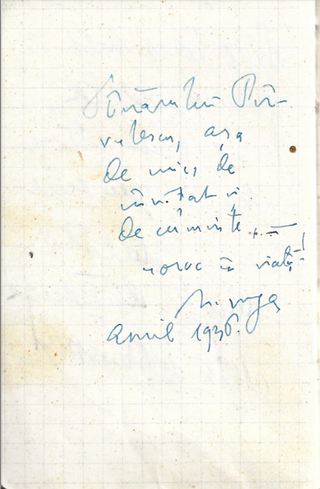 Tînărului Pîr-
vulescu, așa
de mic, de
învățat și
de cuminte... —
noroc în viață!
N. Iorga
April 1936.